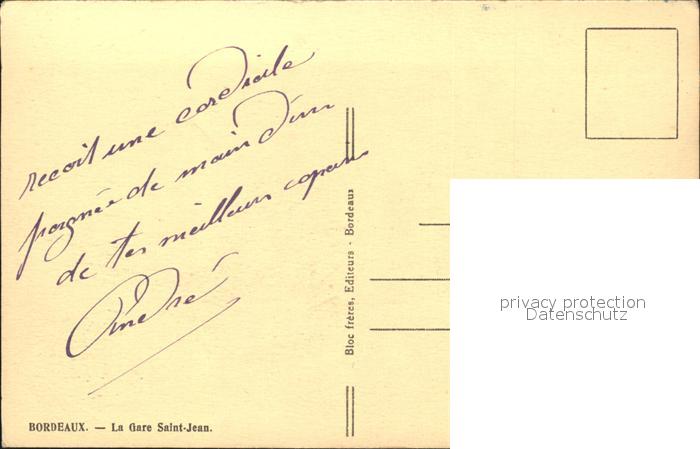 recoit une cordiale
poignée de main d'un
de tes meilleurs copains
André
Bloc frères, Editeurs - Bordeaux
privacy protection
Datenschutz
BORDEAUX. — La Gare Saint-Jean.